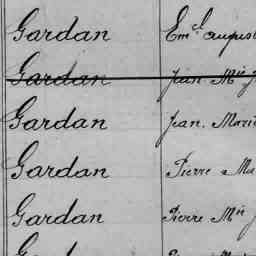 Gardan Em.el august
Gardan Jean Mie J
Gardan Jean. Marie
Gardan Pierre Ma
Gardan Pierre Mie J
Gardan